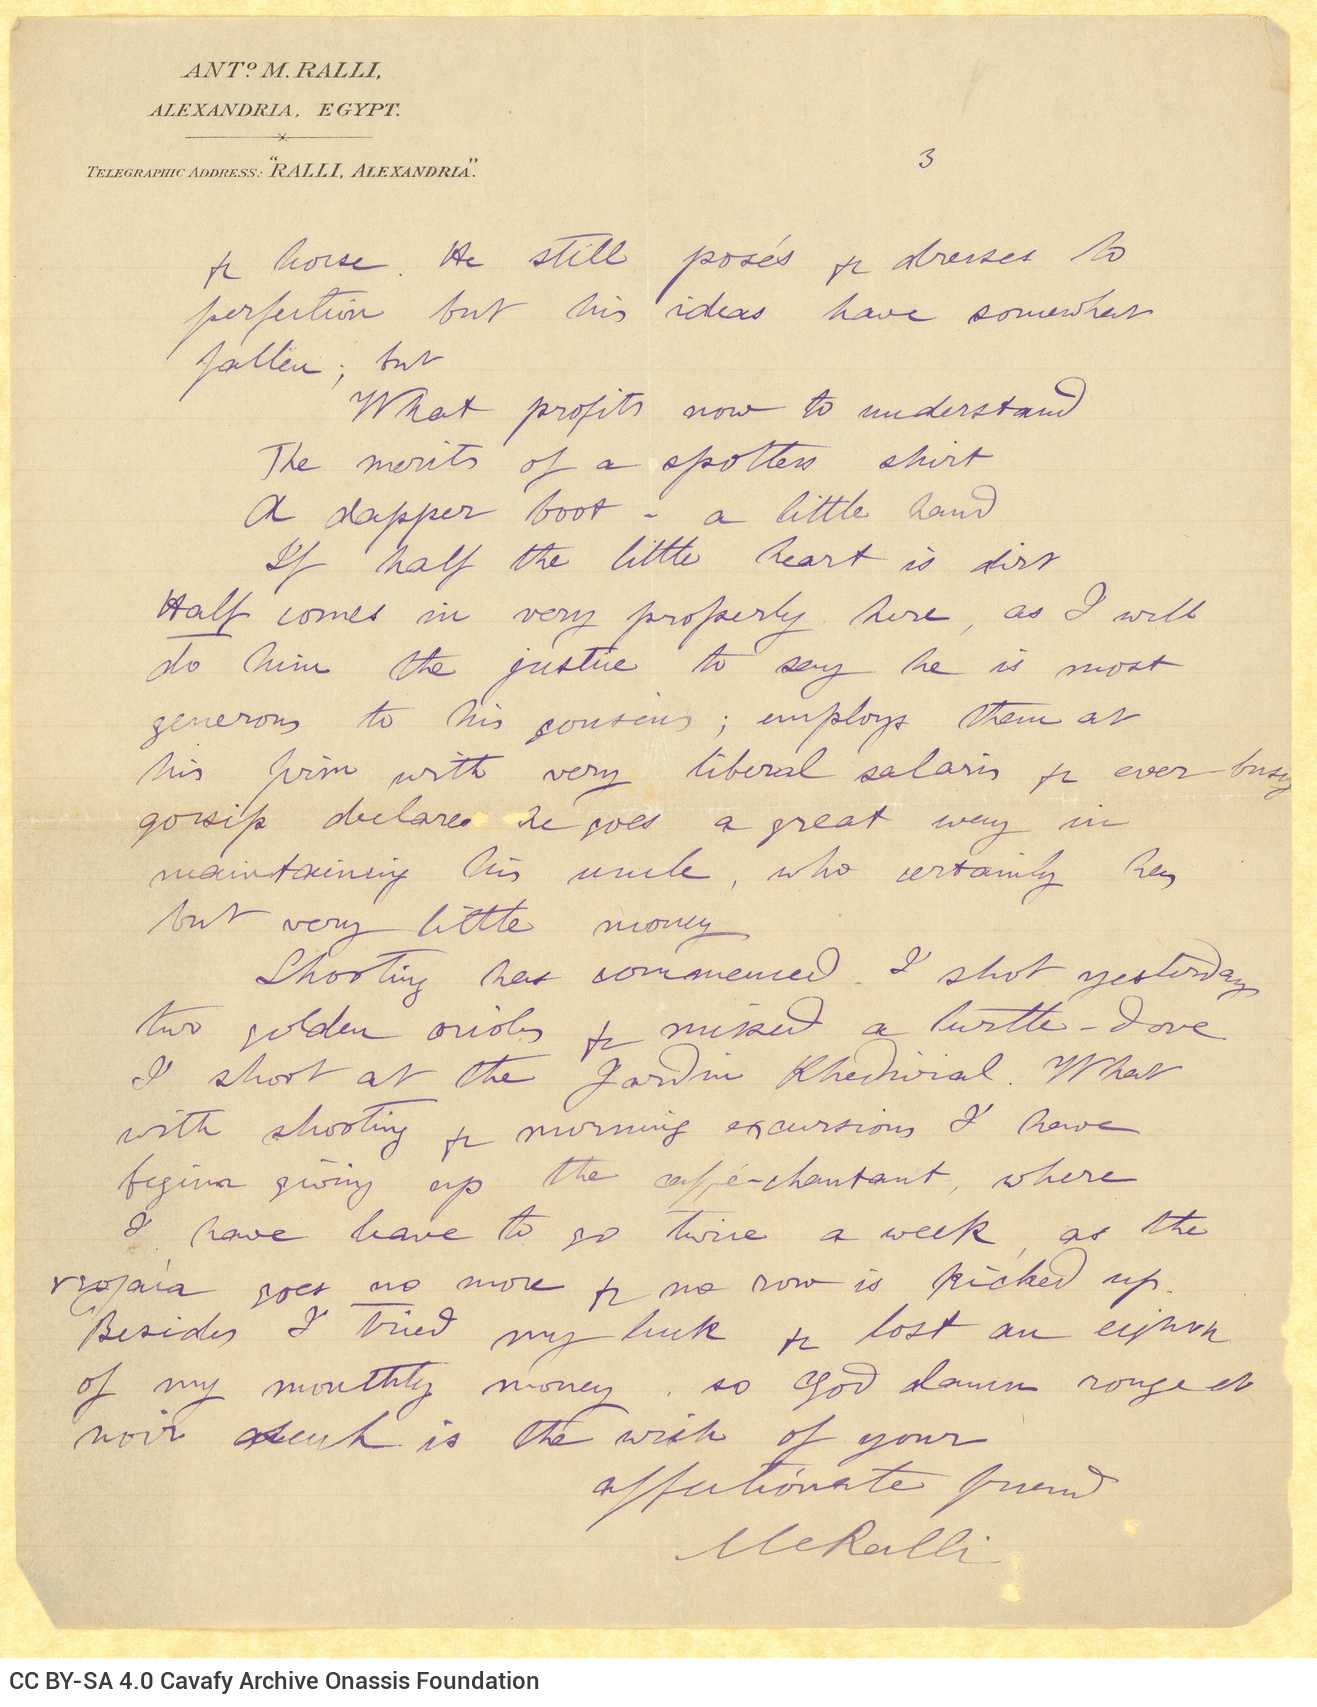 ANTº M. RALLI,
ALEXANDRIA, EGYPT.
TELEGRAPHIC ADDRESS: "RALLI, ALEXANDRIA".
3
& horse. He still posés & dresses to
perfection but his ideas have somewhat
fallen; but
What profits now to understand
The merits of a spotless shirt
A dapper boot - a little hand
If half the little heart is dirt
Half comes in very properly here, as I will
do him the justice to say he is most
generous to his cousins; employs them at
his firm with very liberal salaris & ever busy
gossip declares he goes a great way in
maintaining his uncle, who certainly has
but very little money
Shooting has commenced. I shot yesterday
two golden orioles & missed a turtle-dove
I shoot at the Jardin Khedivial. What
with shooting & morning excursions I have
begun giving up the caffé-chantant, where
I have leave to go twice a week, as the
goes no more & no row is kicked up.
Besides I tried my luck & lost an eighth
of my monthly money. so God damn rouge et
noir is the wish of your
affectionate friend
MRalli
CC BY-SA 4.0 Cavafy Archive Onassis Foundation